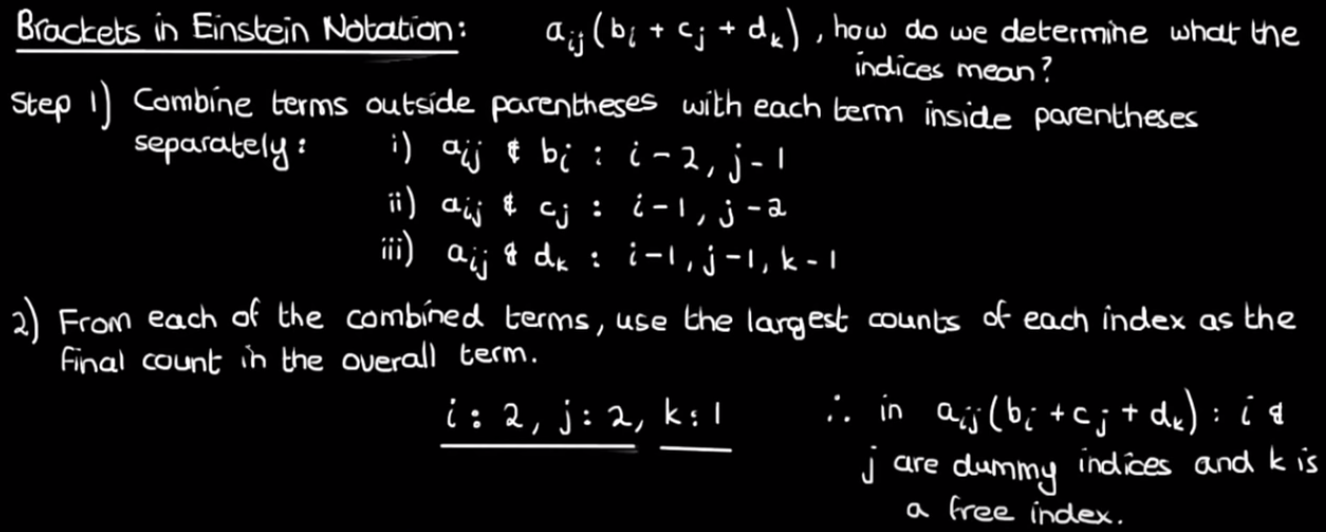 Brackets in Einstein Notation: a_ij (b_i + c_j + d_k), how do we determine what the
indices mean?
Step 1) Combine terms outside parentheses with each term inside parentheses
separately: i) a_ij & b_i : i - 2, j - 1
ii) a_ij & c_j : i - 1, j - 2
iii) a_ij & d_k : i - 1, j - 1, k - 1
2) From each of the combined terms, use the largest counts of each index as the
final count in the overall term.
i : 2, j : 2, k : 1 ∴ in a_ij (b_i + c_j + d_k) : i &
j are dummy indices and k is
a free index.